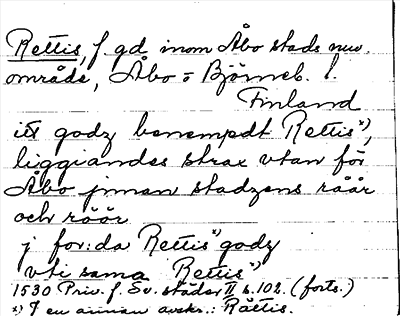 Rettis, f. gd inom Åbo stads nuv.
område, Åbo o Björneb. l.
Finland
itt godz benempdt Rettis x),
liggiandes strax vtan för
Åbo jnnan stadzens råår
och röör
j for:da Rettis x) godz
vti sama Rettis x)
1530 Priv. f. Sv. städer II s. 102. (forts.)
x) I en annan avskr.: Rättis.